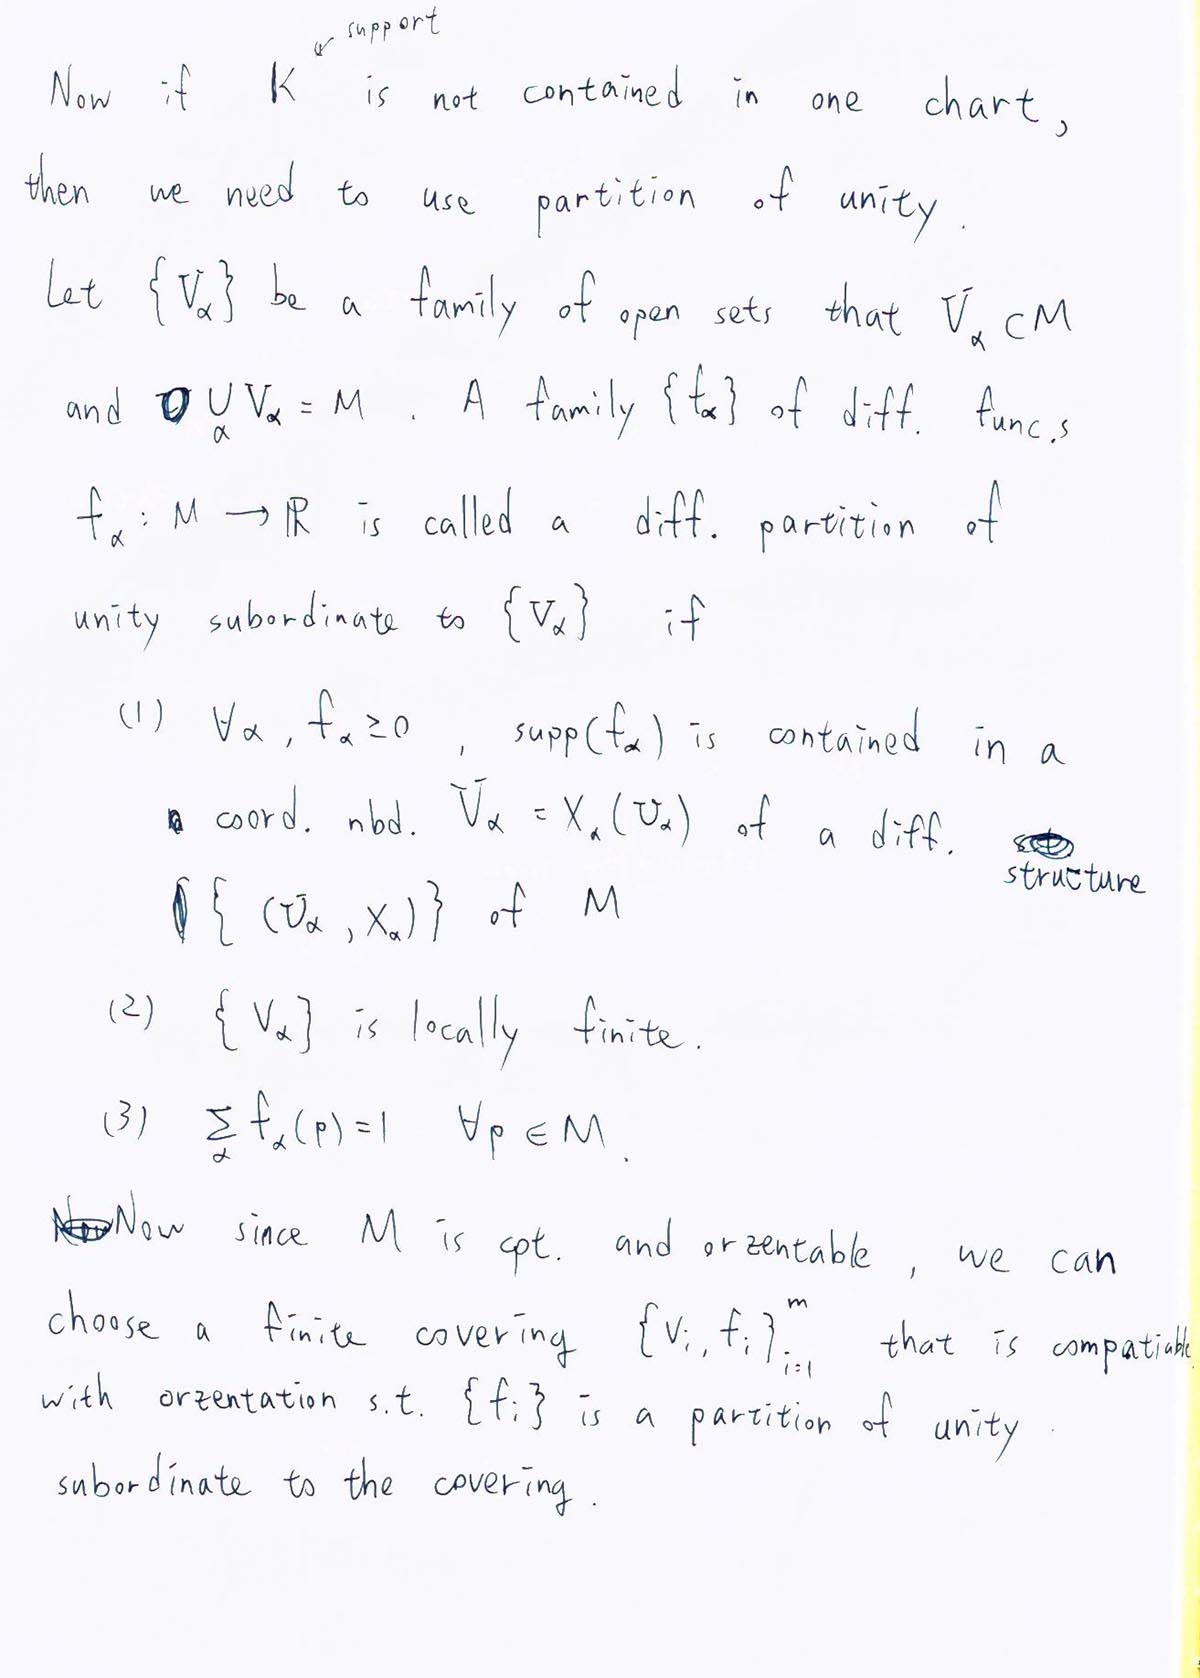 support
Now if K is not contained in one chart,
then we need to use partition of unity.
Let {V_α} be a family of open sets that V_α ⊂ M
and ∪_α V_α = M . A family {f_α} of diff. func.s
f_α : M → ℝ is called a diff. partition of
unity subordinate to {V_α} if
(1) ∀α, f_α ≥ 0 , supp(f_α) is contained in a
coord. nbd. V_α = X_α(U_α) of a diff.
structure
{(U_α, X_α)} of M
(2) {V_α} is locally finite.
(3) Σ_α f_α(p) = 1 ∀p ∈ M.
Now since M is cpt. and orzentable, we can
choose a finite covering {V_i, f_i}_{i=1}^m that is compatiable
with orzentation s.t. {f_i} is a partition of unity
subordinate to the covering.